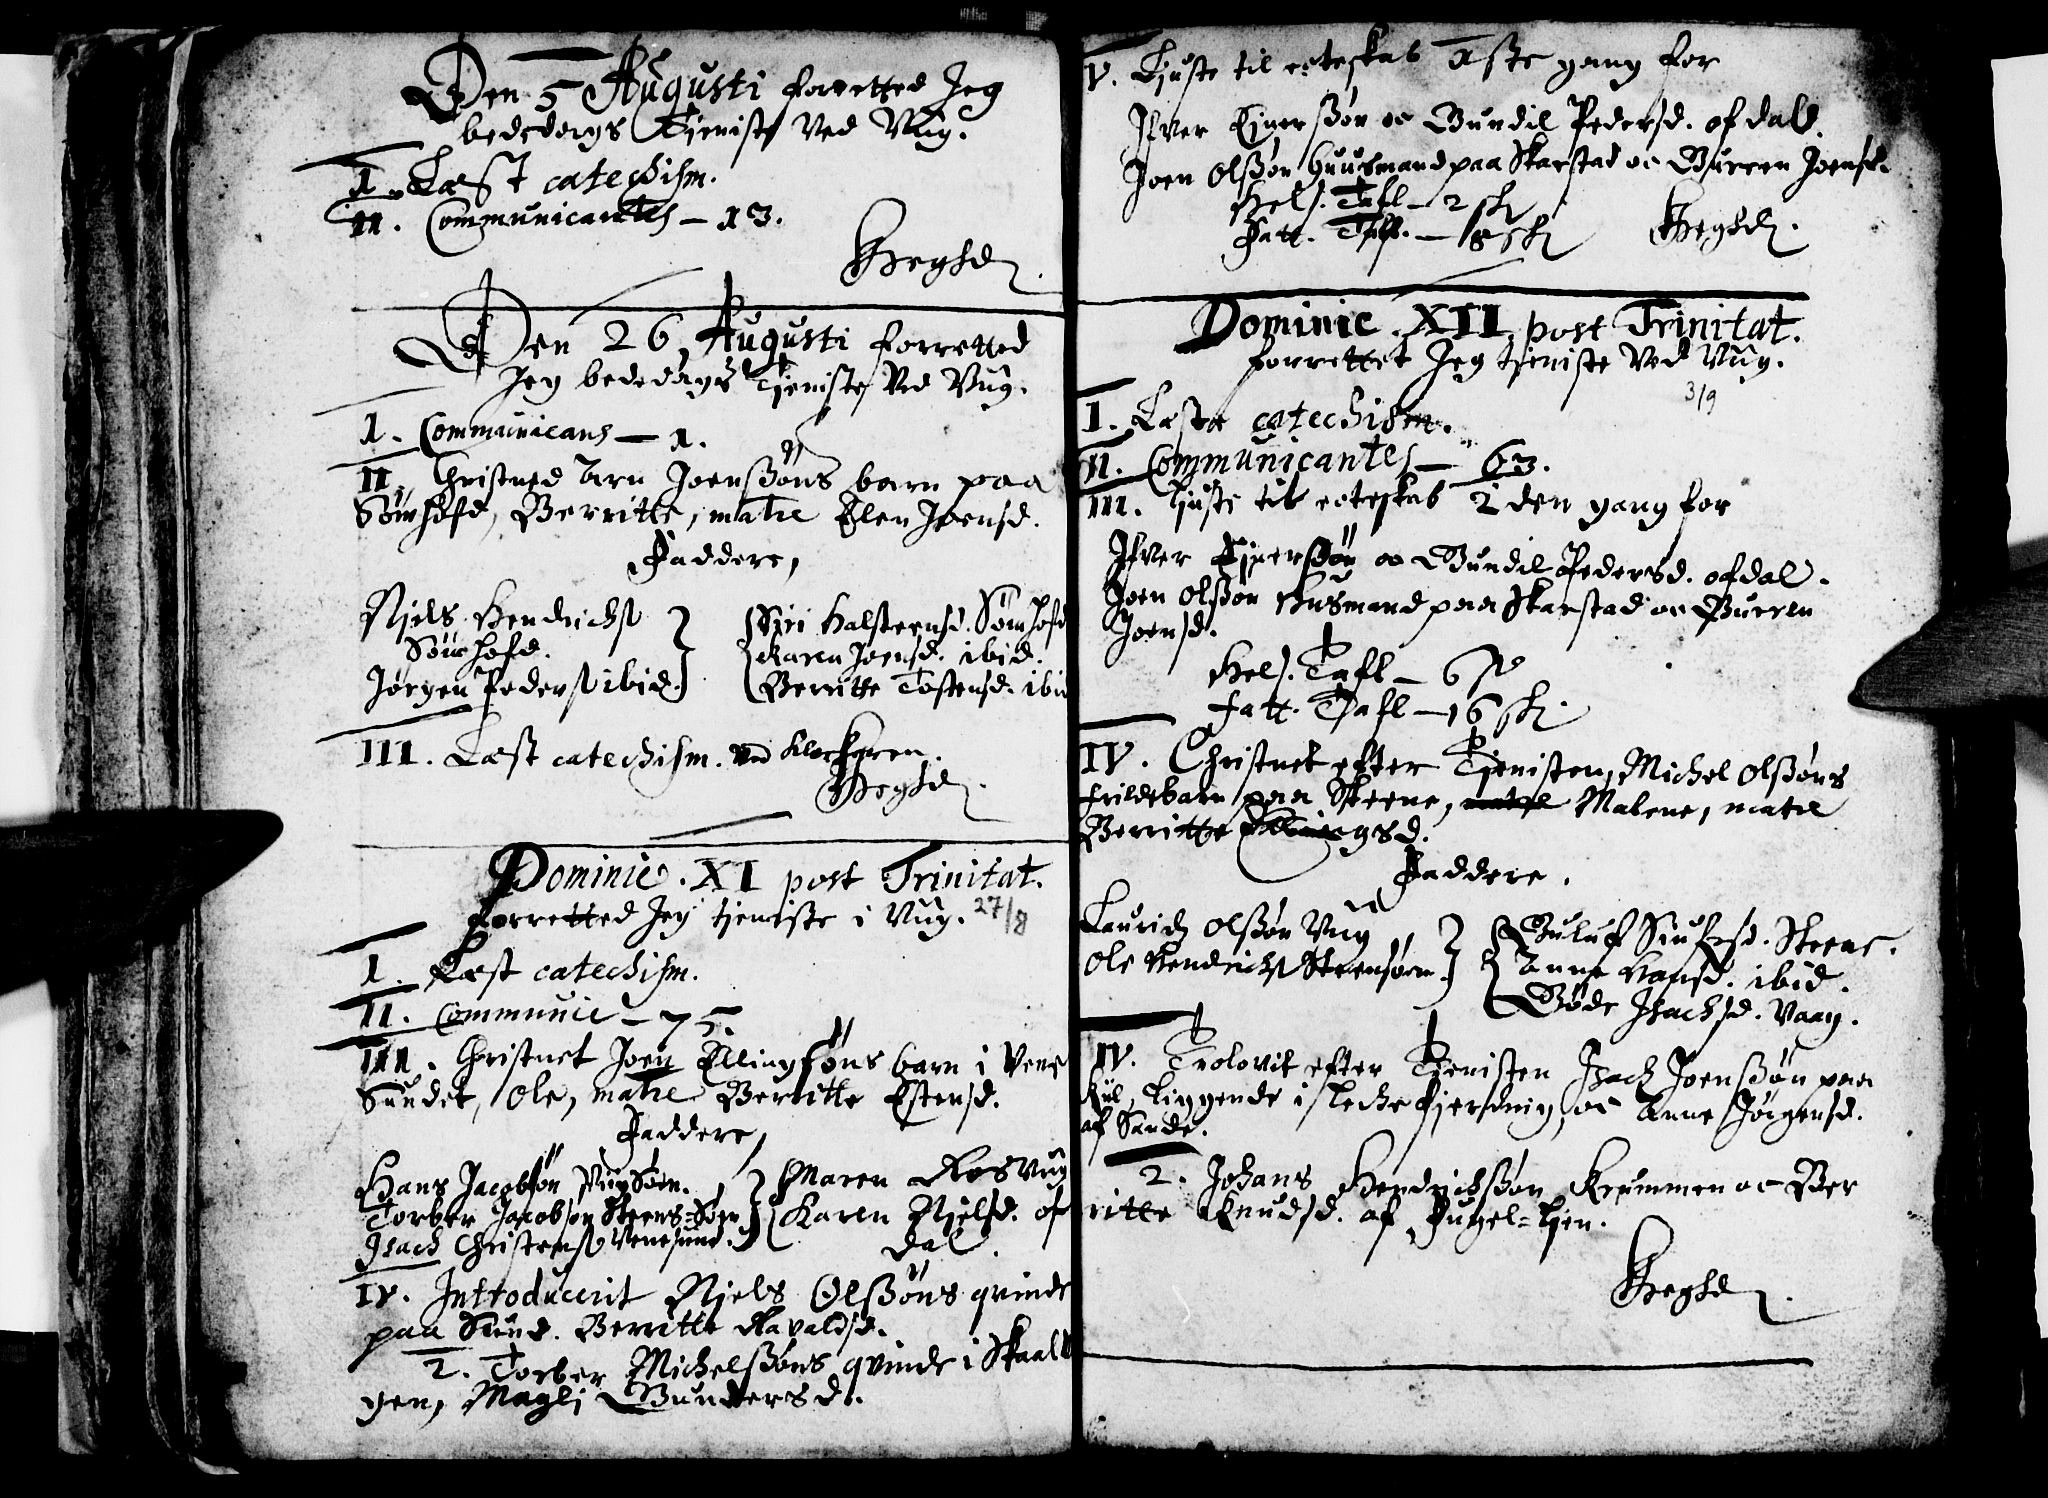 Den 5 Augusti forretted Jeg
bededags Tjeniste Ved Vug.
I. Læst catechism.
II. Communicantes – 13.
Heghd
Den 26 Augusti forretted
Jeg bededags Tjeniste Ved Vug.
I. Communicans – 1.
II. Christned Arn Joenssøns barn paa
Sømhofd, Berritte, matre Elen Joensd.
Faddere,
Njels Hendrichs
Sømhofd.
Jørgen Peders ibid.
Siri Halsteensd. Sømhofd
Karen Joensd. ibid.
Berritte Tostensd. ibid
III. Læst catechism. ved Klochgren.
Heghd
Dominic. XI post Trinitat.
forretted Jeg tjeniste i Vug. 27/8
I. Læst catechism.
II. Communic – 75.
III. Christnet Joen Ellingsøns barn i Vene
Sundet, Ole, matre Berritte Estensd.
Faddere,
Hans Jacobsøn Vug Søen.
Torber Jacobsøn Steens-Søen
Isach Christens Venesund.
Maren Roes Vug
Karen Njelsd. of
dal.
IV. Introducerit Njels Olssøns qvinde
paa Sund. Berritte Havaldsd.
2. Torber Michelssøns qvinde i Skaald
gen, Magli Gundersd.
V. Liuste til ecteskab 1ste gang for
Ifver Ejnerssøn oc Gundil Pedersd. ofdal.
Joen Olssøn huusmand paa Skarstad oc Gurren Joensd.
Hels. Tafl – 2 sk
Fatt. Tafl. – 8 sk
Heghd.
Dominic. XII post Trinitat.
forrettet Jeg tjeniste Ved Vug.
3/9
I. Læste catechism.
II. Communicantes – 63.
III. Liuste til ecteskab 2 den gang for
Ifver Ejnerssøn oc Gundil Pedersd. ofdal.
Joen Olssøn Husmand paa Skarstad oc Gurren
Joensd.
Hels. Tafl – 6
fatt. Tafl – 16 sk.
IV. Christnet efter Tjenisten, Michel Olssøns
frildebarn paa Steene, Malene, matre
Berritte Ellingsd.
Faddere.
Laurids Olssøn Vug
Ole Hendrichs Steensøen
Guluf Siufrsd. Steene.
Anne Hansd. ibid.
Gøde Isachsd. Vaag.
IV. Trolovit efter Tjenisten Isach Joenssøn paa
liggende i Leche fjerdning, oc Anne Jørgensd.
af Sande.
2. Johans Hendrichssøn Krummen oc Ber
ritte Knudsd. af Fugel-tjen.
Heghd.